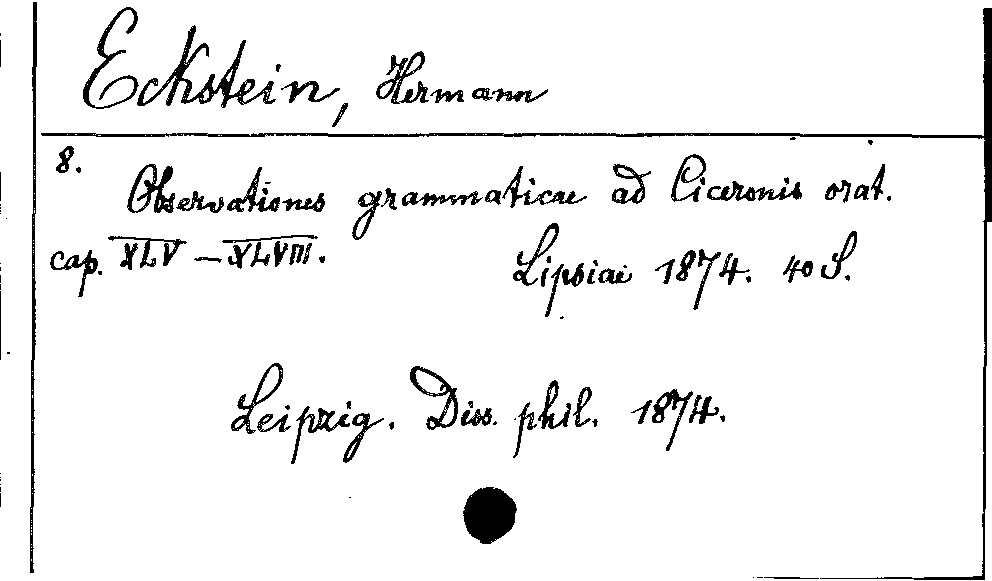 Eckstein, Hermann
8.
Observationes grammaticae ad Ciceronis orat.
cap. XLV – XLVIII. Lipsiae 1874. 40 S.
Leipzig. Diss. phil. 1874.